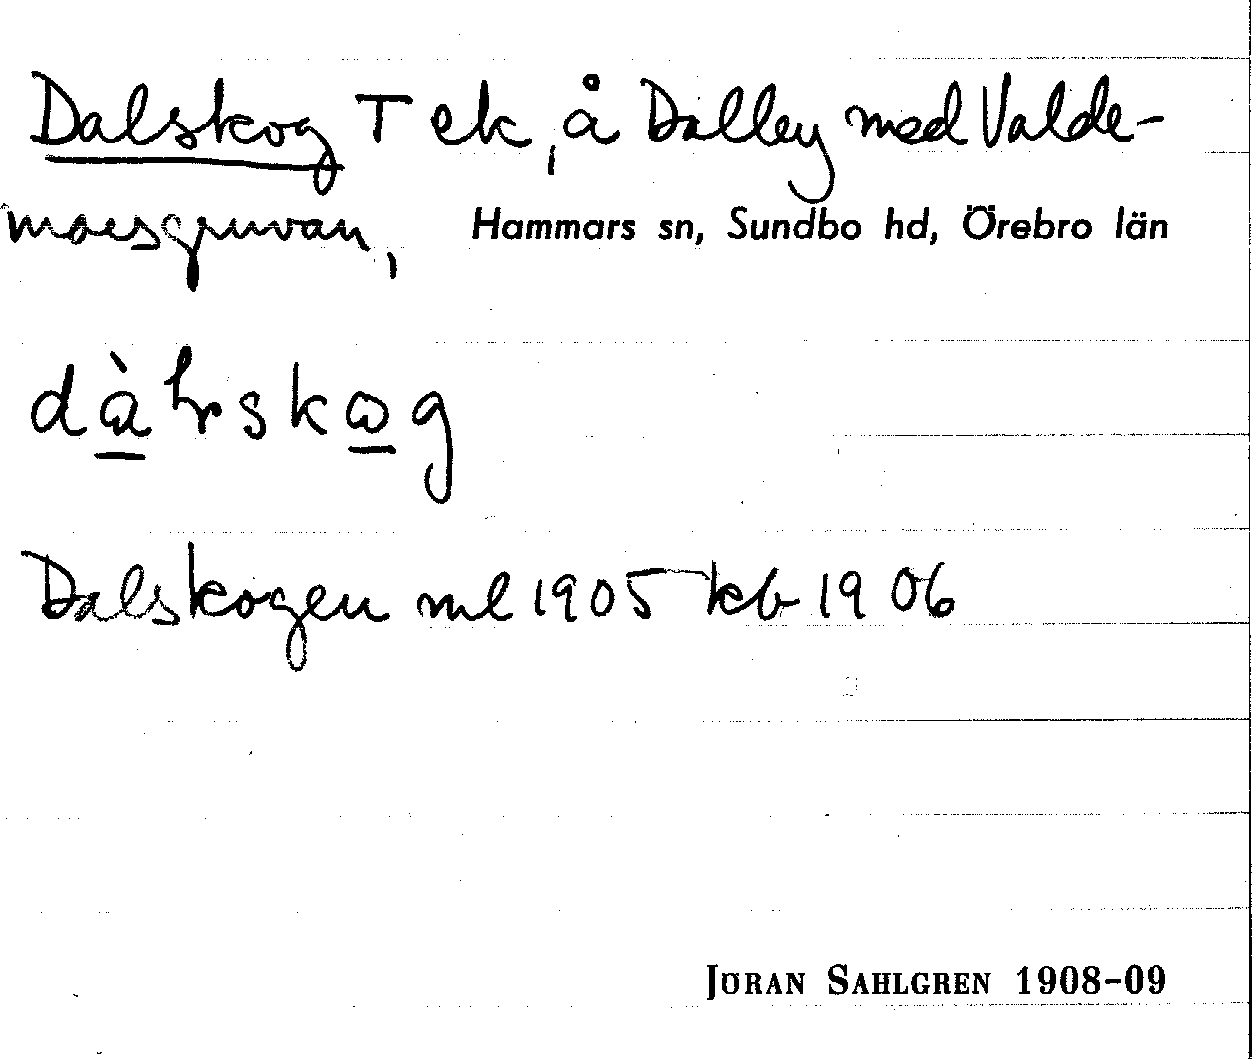 Dalskog T ek, å Dalley med Valde-
marsgruvan, Hammars sn, Sundbo hd, Örebro län
Dalskogen ml 1905 kb 1906
JÖRAN SAHLGREN 1908-09